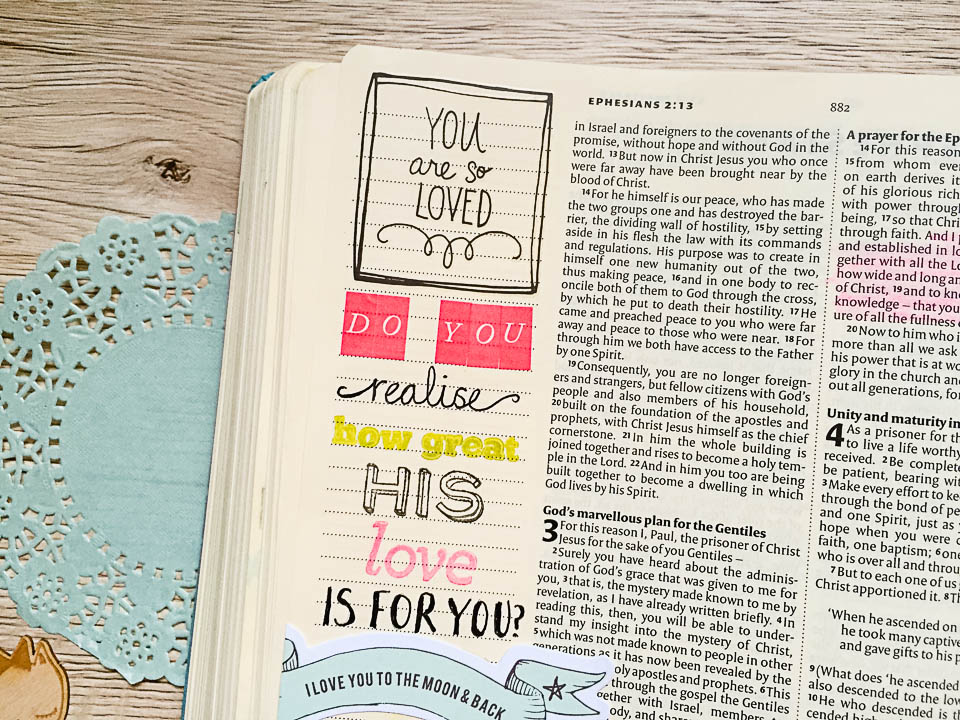 YOU
are so
LOVED
DO YOU
realise
how great
HIS
love
IS FOR YOU?
I LOVE YOU TO THE MOON & BACK
EPHESIANS 2:13
882
in Israel and foreigners to the covenants of the
promise, without hope and without God in the
world. 13 But now in Christ Jesus you who once
were far away have been brought near by the
blood of Christ.
14 For he himself is our peace, who has made
the two groups one and has destroyed the bar-
rier, the dividing wall of hostility, 15 by setting
aside in his flesh the law with its commands
and regulations. His purpose was to create in
himself one new humanity out of the two,
thus making peace, 16 and in one body to rec-
oncile both of them to God through the cross,
by which he put to death their hostility. 17 He
came and preached peace to you who were far
away and peace to those who were near. 18 For
through him we both have access to the Father
by one Spirit.
19 Consequently, you are no longer foreign-
ers and strangers, but fellow citizens with God's
people and also members of his household,
20 built on the foundation of the apostles and
prophets, with Christ Jesus himself as the chief
cornerstone. 21 In him the whole building is
joined together and rises to become a holy tem-
ple in the Lord. 22 And in him you too are being
built together to become a dwelling in which
God lives by his Spirit.
God's marvellous plan for the Gentiles
3 For this reason I, Paul, the prisoner of Christ
Jesus for the sake of you Gentiles –
2 Surely you have heard about the adminis-
tration of God's grace that was given to me for
you, 3 that is, the mystery made known to me by
revelation, as I have already written briefly. 4 In
reading this, then, you will be able to under-
stand my insight into the mystery of Christ,
5 which was not made known to people in other
generations as it has now been revealed by the
holy apostles and prophets. 6 This
through the gospel the Gentiles
together with Israel, members
body, and
A prayer for the
14 For this reason
15 from whom
on earth derives it
of his glorious
with power through
being, 17 so that
through faith. And I
and established in
gether with all the
how wide and long
of Christ, 19 and to
knowledge – that you
ure of all the fullness
20 Now to him who
more than all we ask
his power that is at
glory in the church and
out all generations,
Unity and maturity in
4 As a prisoner for
to live a life worthy
received. 2 Be
be patient, bearing
3 Make every effort to
through the bond of
and one Spirit, just as
hope when you were
faith, one baptism; 6
who is over all and
7 But to each one of us
Christ apportioned it. 8
'When he ascended on
he took many
and gave gifts to his
9 (What does 'he ascended
also descended to the
10 He who descended is
cended